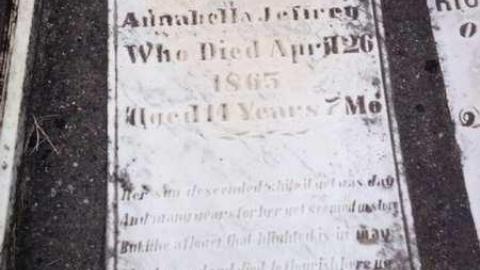 Annabella Jeffrey
Who Died April 26
1863
Aged 14 Years 7 Mo
Her sun descended while it yet was day
And many years for her yet seemed in store
But like a flower that blighted is in may